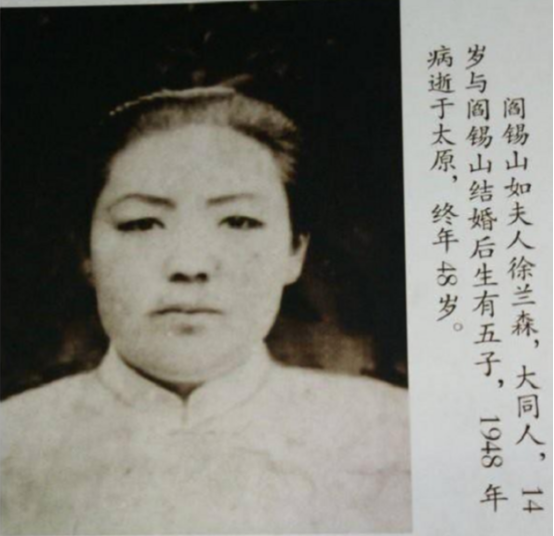 阎锡山如夫人徐兰森，大同人，14
岁与阎锡山结婚后生有五子，1948 年
病逝于太原，终年 48 岁。